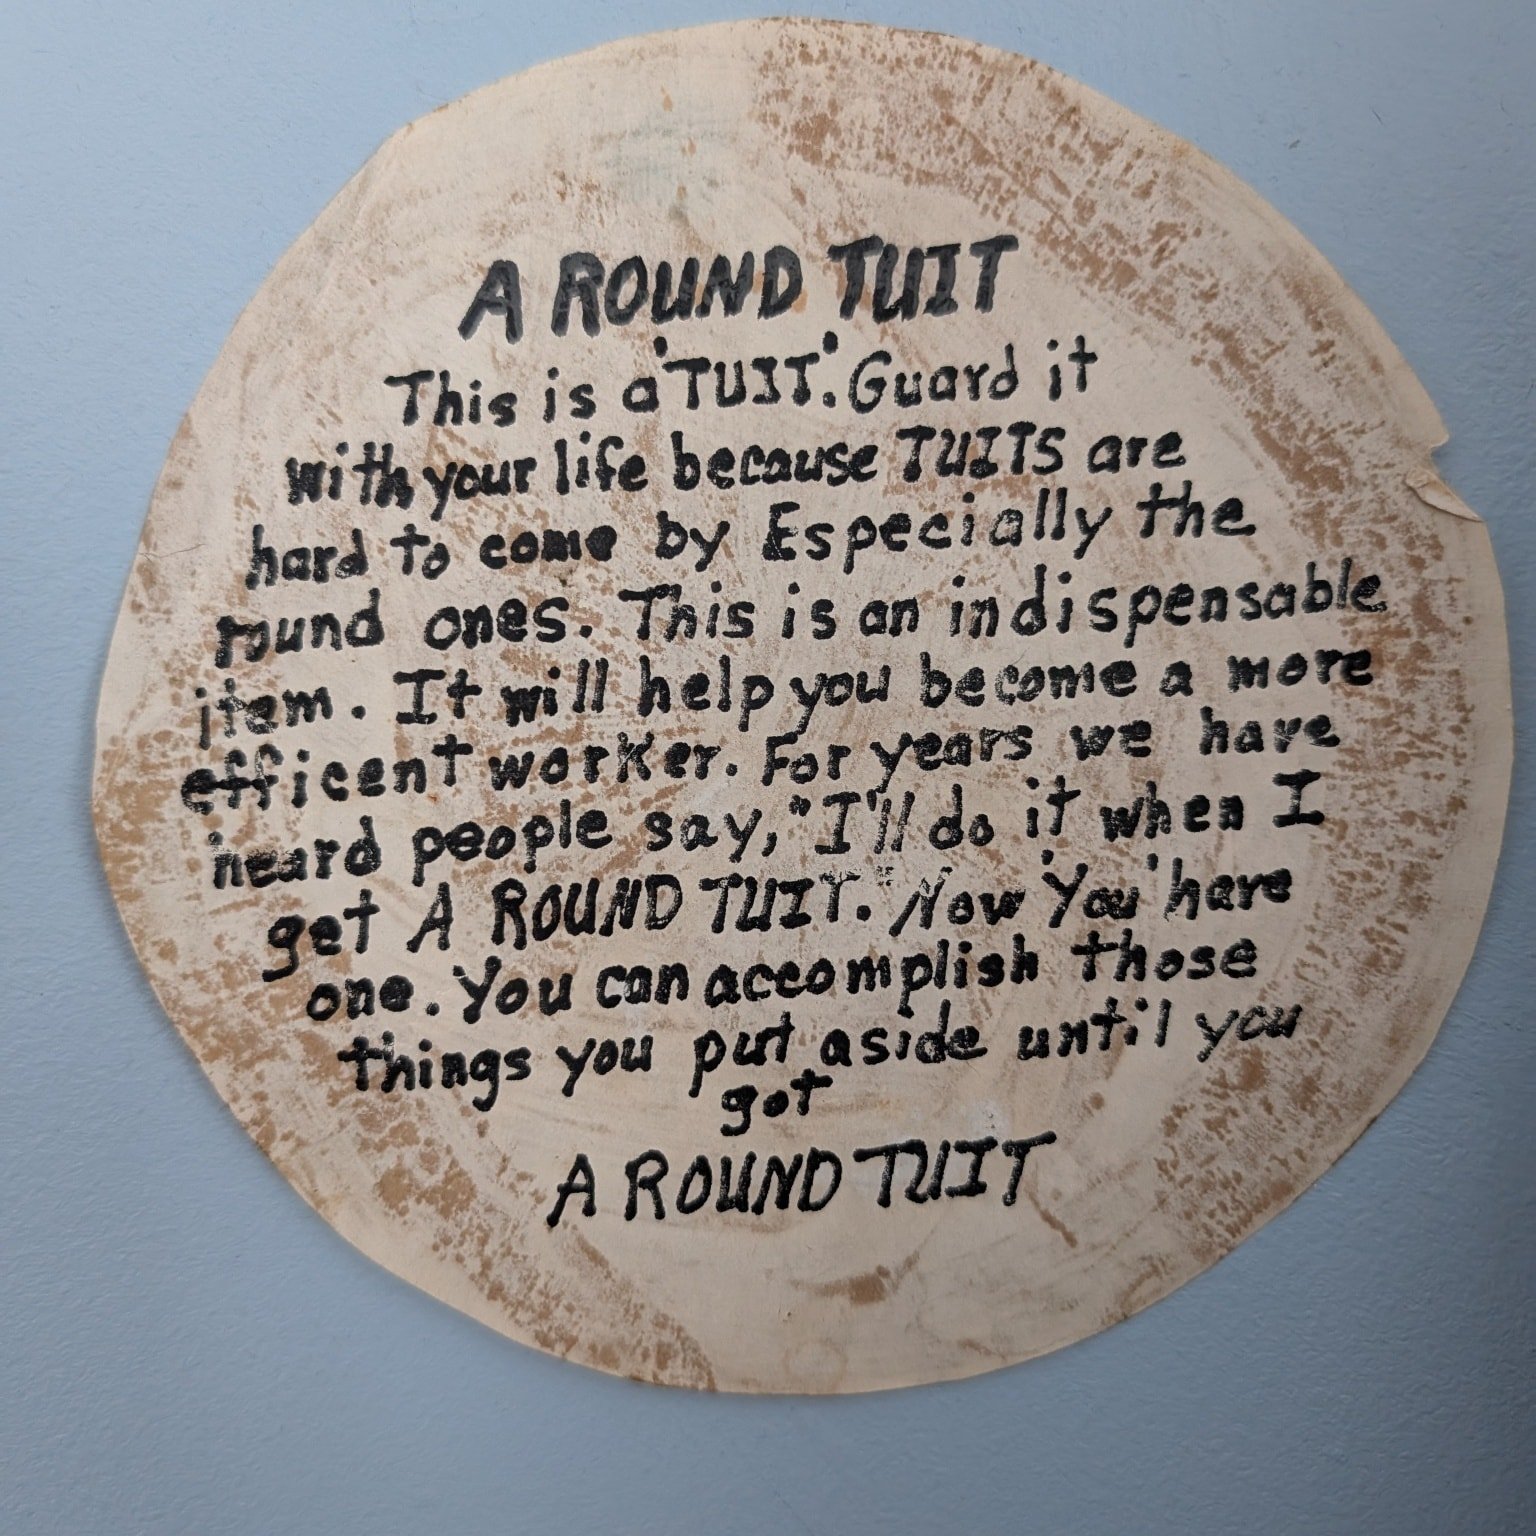 A ROUND TUIT
This is a 'TUIT'. Guard it
with your life because TUITS are
hard to come by Especially the
round ones. This is an indispensable
item. It will help you become a more
efficent worker. For years we have
heard people say, "I'll do it when I
get A ROUND TUIT." Now 'You' have
one. You can accomplish those
things you put aside until you
got
A ROUND TUIT